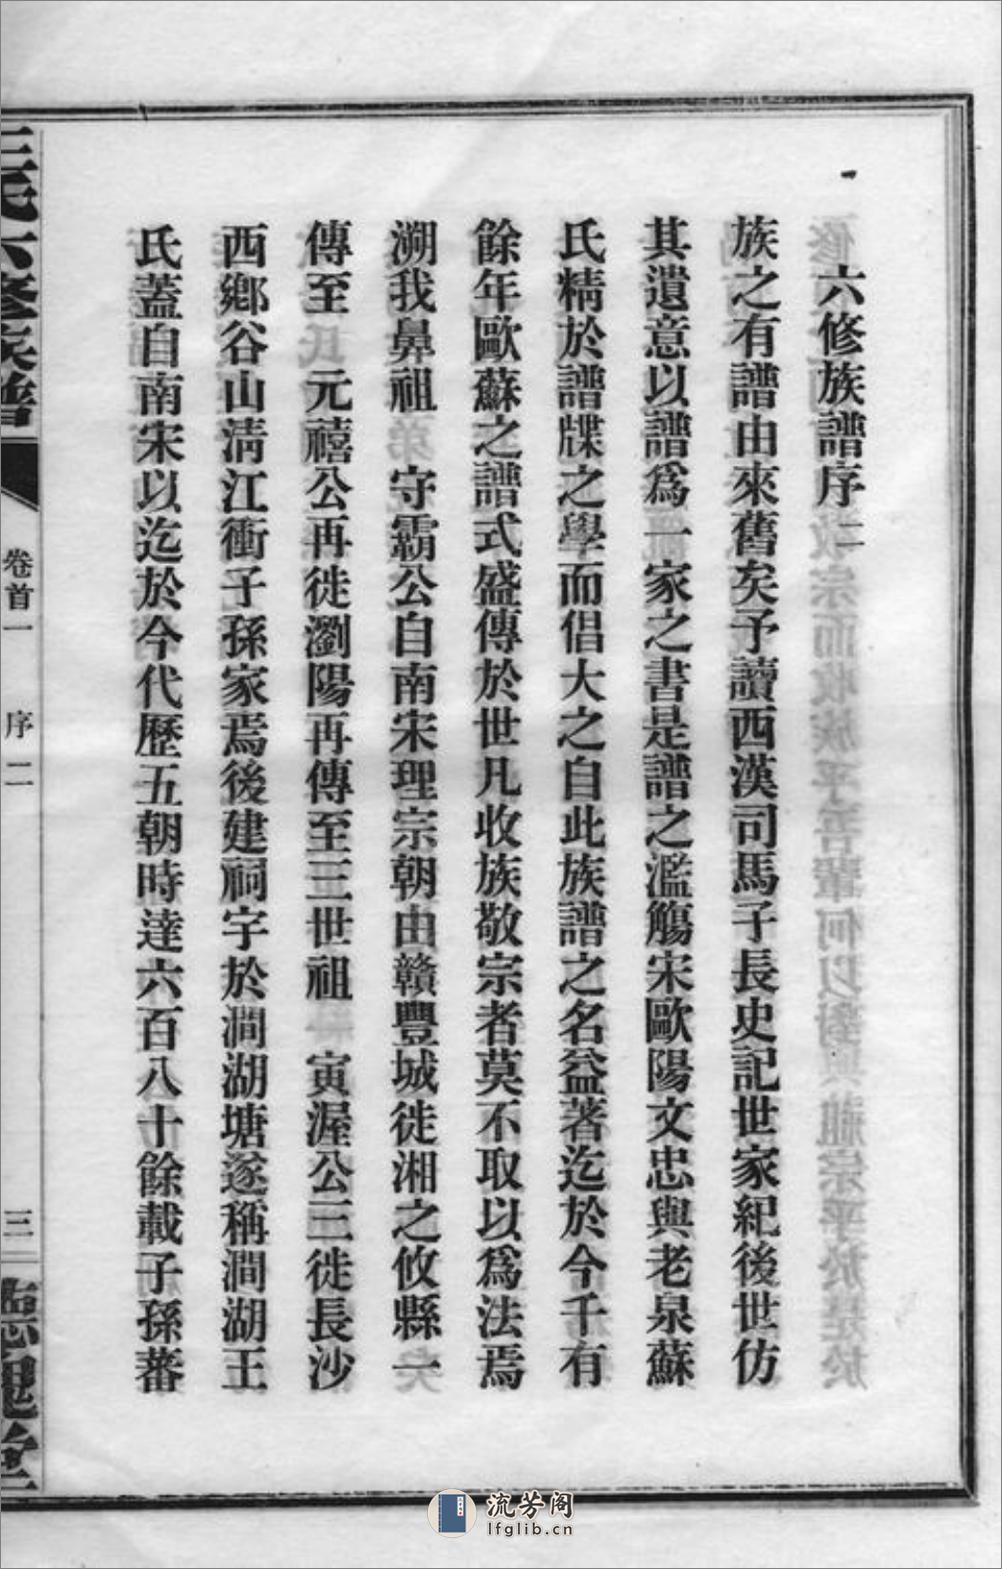 六修族譜序二
族之有譜由來舊矣予讀西漢司馬子長史記世家紀後世仿
其遺意以譜爲一家之書是譜之濫觴宋歐陽文忠與老泉蘇
氏精於譜牒之學而倡大之自此族譜之名益著迄於今千有
餘年歐蘇之譜式盛傳於世凡收族敬宗者莫不取以爲法焉
溯我鼻祖 守霸公自南宋理宗朝由贛豐城徙湘之攸縣一
傳至 元禧公再徙瀏陽再傳至三世祖 寅渥公三徙長沙
西鄉谷山清江衝子孫家焉後建祠宇於澗湖塘遂稱澗湖王
氏蓋自南宋以迄於今代歷五朝時逹六百八十餘載子孫蕃
王氏六修族譜
卷首一 序二
三
流芳阁
lfglib.cn